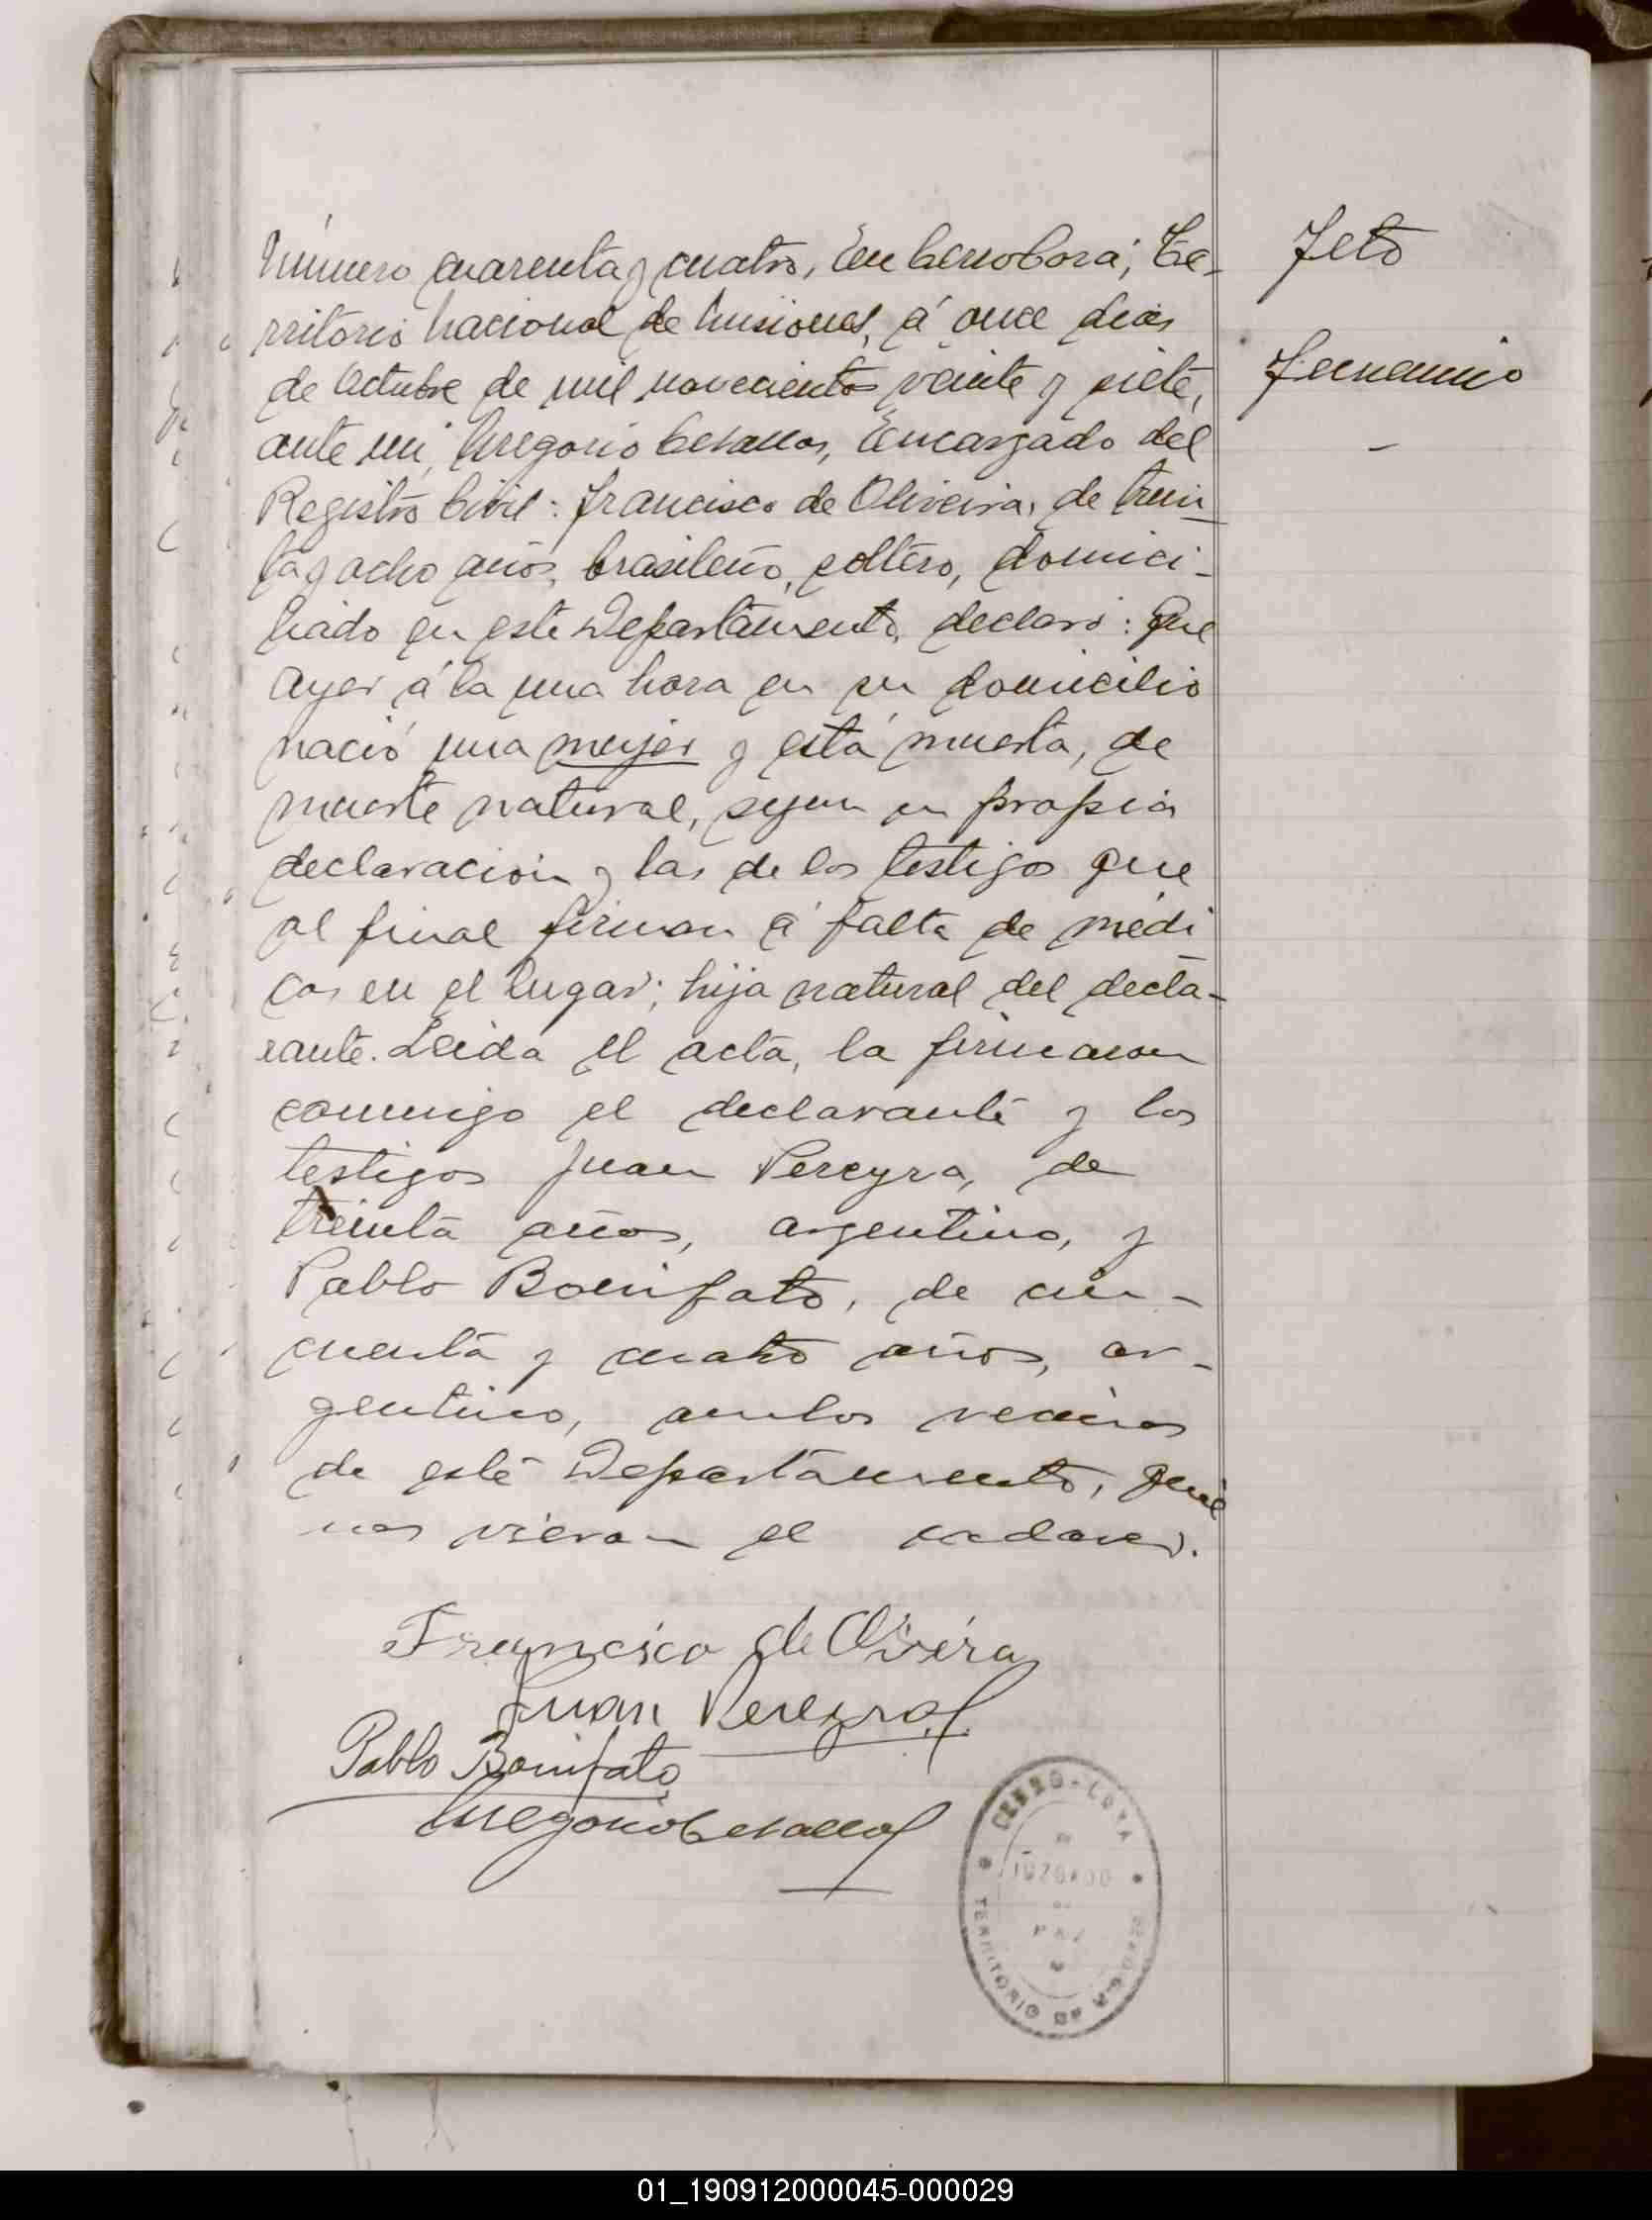 Número cuarenta y cuatro, En Cerro Corá, Te-
rritorio Nacional de Misiones, á once dias
de Octubre de mil novecientos veinte y siete,
ante mi, Gregorio Cevallos, Encargado del
Registro Civil: Francisco de Oliveira, de trein
ta y ocho años, brasileño, soltero, domici-
liado en este Departamento, declaró: Que
ayer á la una hora en su domicilio
nació una mujer y está muerta, de
muerte natural, segun su propia
declaración y las de los testigos que
al final firman á falta de médi
cos en el lugar; hija natural del decla-
rante. Leida el acta, la firmaron
conmigo el declarante y los
testigos Juan Pereyra, de
treinta años, argentino, y
Pablo Bonifato, de cin-
cuenta y cuatro años, ar-
gentino, ambos vecinos
de este Departamento, quie
nes vieron el cadaver.
Francisco de Olivéra
Juan Pereyra
Pablo Bonifato
Gregorio Cevallos
Feto
Femenino
CERRO-CORA
JUZGADO
DE
PAZ
TERRITORIO DE MISIONES
01_190912000045-000029